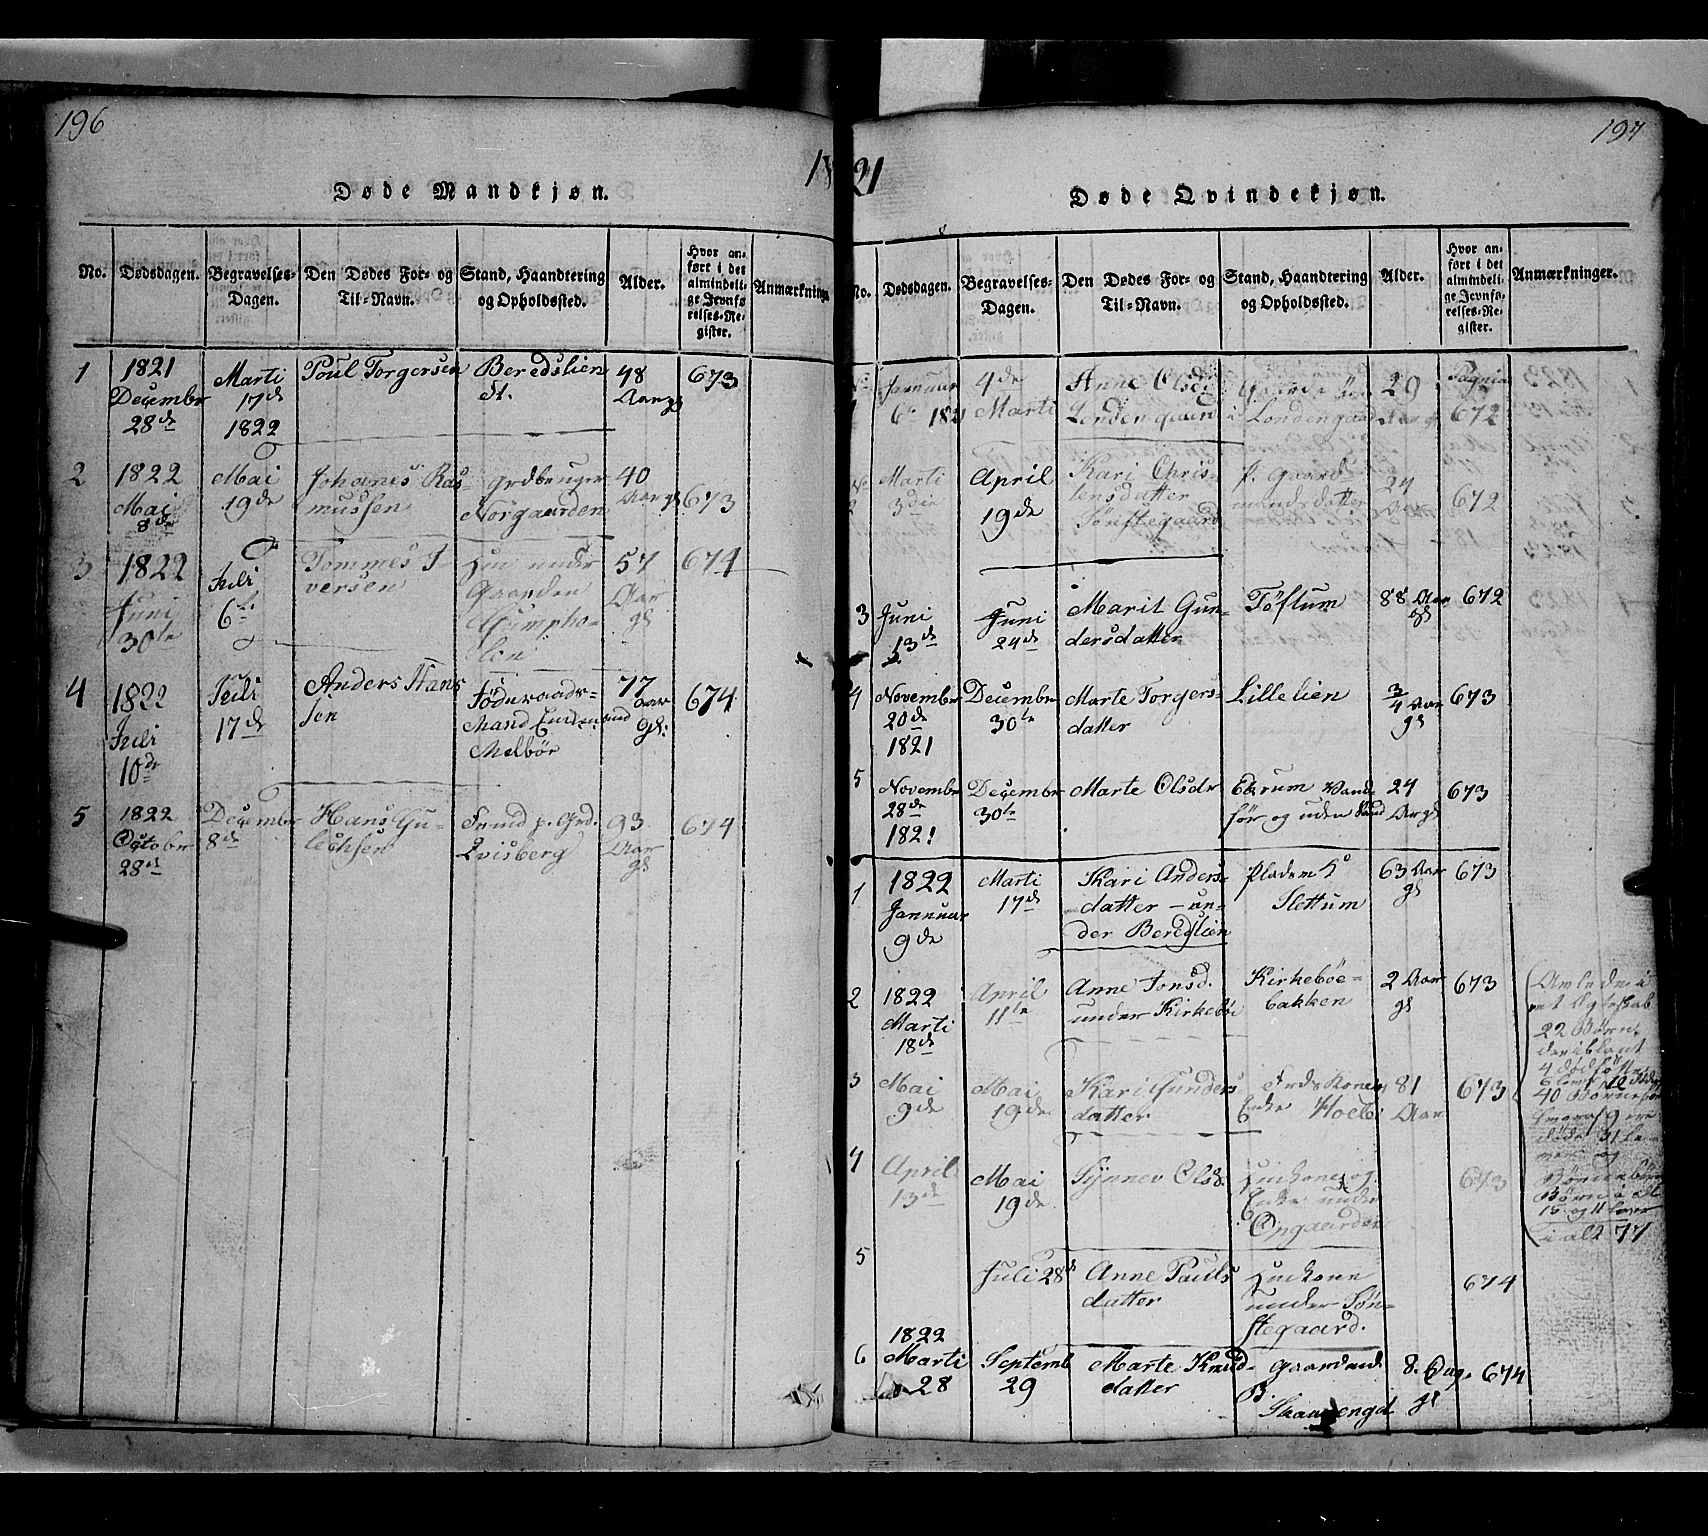 196
1821
Døde Mandkjøn.
No.
Dødsdagen.
Begravelses-
Dagen.
Den Dødes For- og
Til-Navn.
Stand, Haandtering
og Opholdssted.
Alder.
Hvor an-
ført i det
almindeli-
ge Jevnfø-
relses-Re-
gister.
Anmærkninger
1
1821
Decembr
28de
Marti
17de
1822
Poul Torgersen
Beredslien
48
Aar gl
673
2
1822
Mai
8de
Mai
19de
Johanes Ras
mussen
grdbruger
Norgaarden
40
Aar gl
673
3
1822
Juni
30te
Juli
6te
Tommes I
versen
under
Gaarden
57
Aar
gl
674
4
1822
Juli
10de
Juli
17de
Anders Hans
sen
Føderaads-
Mand
Melbør
77
Aar
gl:
674
5
1822
October
28de
Decembr
8de
Hans Gu-
lechsen
p. Grd.
Qvisberg
93
Aar
gl
674
197
Døde Qvindekjøn.
No.
Dødsdagen.
Begravelses-
Dagen.
Den Dødes For- og
Til-Navn.
Stand, Haandtering
og Opholdssted.
Alder.
Hvor an-
ført i det
almindeli-
ge Jevnfø-
relses-Re-
gister.
Anmærkninger.
1
Januar
6te 1821
4de
Marti
Anne Olsd
29
Aar gl
Pagina
672
2
Marti
3die
April
19de
Kari Chris-
tensdatter
Sønstegaard
p. gaard
mands datter
24
Aar
672
3
Juni
13de
Juni
24de
Marit Gun-
dersdatter
Tøftum
88 Aar
gl
672
4
November
20de
1821
Decembr
30te
Marte Torgers-
datter
Lillelien
3/4 Aar
gl
673
5
Novembr
28de
1821
Decembr
30te
Marte Olsdr
Ekrum Vand-
før og uden
24
Aar gl
673
1
1822
Januar
9de
Marti
17de
Kari Anders-
datter - un-
der Beredslien
Slettum
63 Aar
gl
673
2
1822
Marti
18de
April
11te
Anne Jonsd.
under Kirkebøi
Kirkebøe-
bakken
2 Aar
gl
673
3
Mai
9de
Mai
19de
Kari Gunders
datter
Enke
81
Aar
673
4
April
13de
Mai
19de
Synnev Olsd.
og
Enke under
Opgaarden
673
5
Juli 28de
Anne Pauls
datter
under Søn-
stegaard.
674
6
1822
Marti
28
Septemb
29
Marte Knud-
datter
8. Dag.
gl
674
Avlede i
et Egteskab
22 Børn
deriblant
4 dødfødte
40 Børnebørn
9 ere
døde 31 le-
og
Børnebørns
Børn i alt
15 og 11 lever
i alt 77